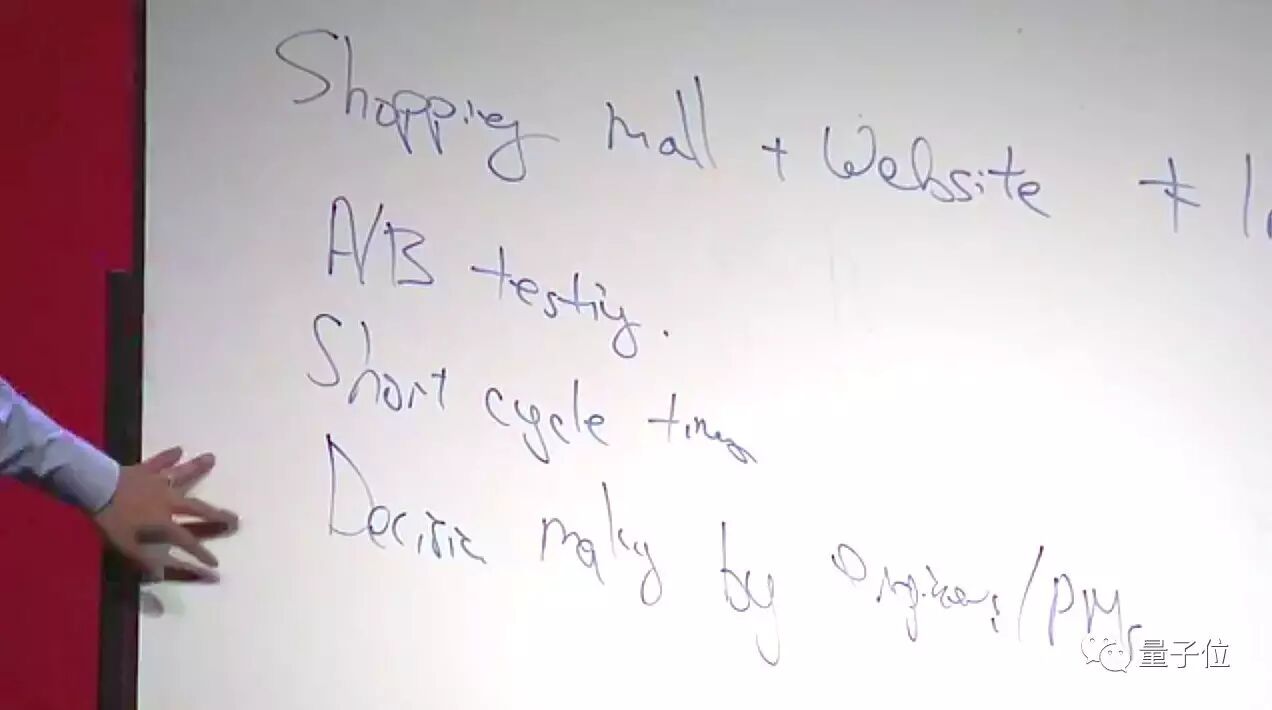 Shopping mall + Website ≠ In
A/B testing.
Short cycle times
Decision making by engineers/PMs
量子位